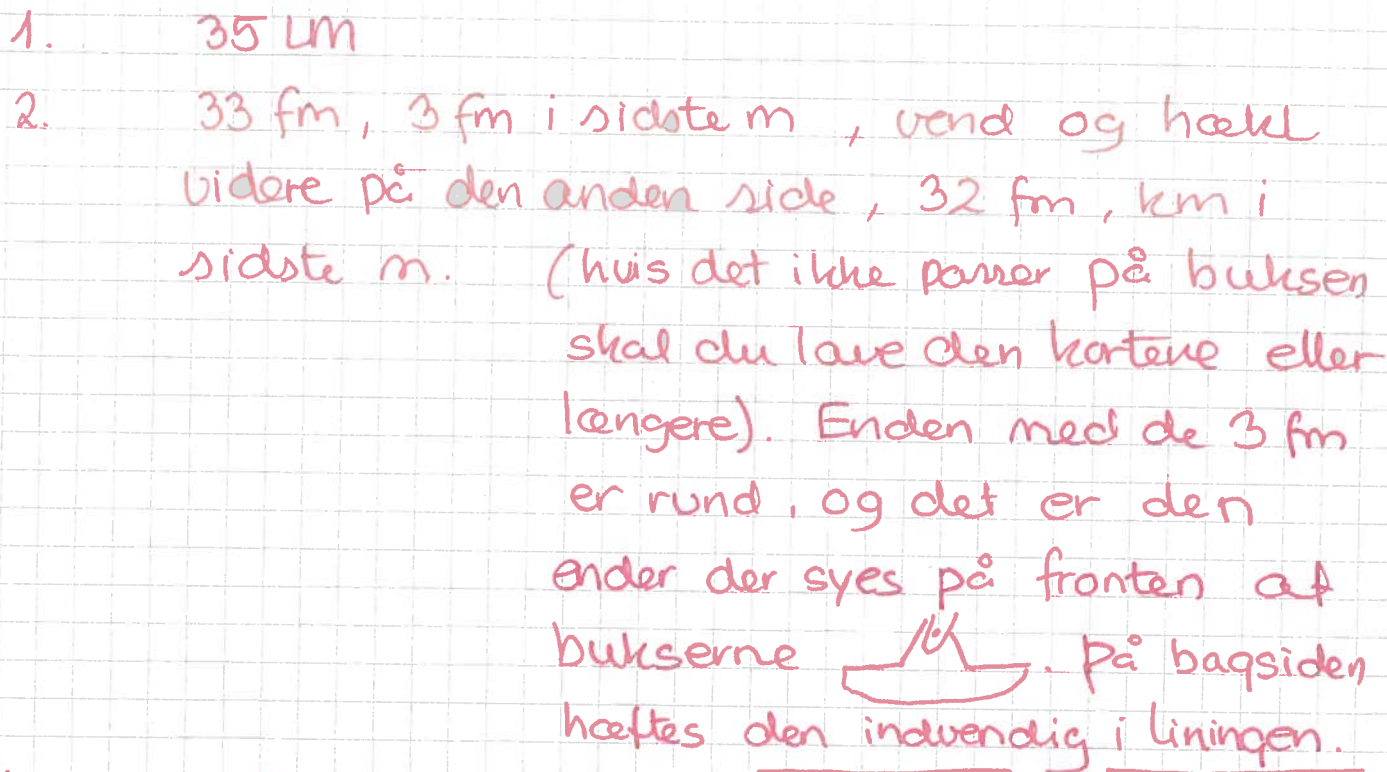 1. 35 Lm
2. 33 fm, 3 fm i sidste m, vend og hækl
videre på den anden side, 32 fm, km i
sidste m. (hvis det ikke passer på buksen
skal du lave den kortere eller
længere). Enden med de 3 fm
er rund, og det er den
ender der syes på fronten af
bukserne . På bagsiden
hæftes den indvendig i liningen.